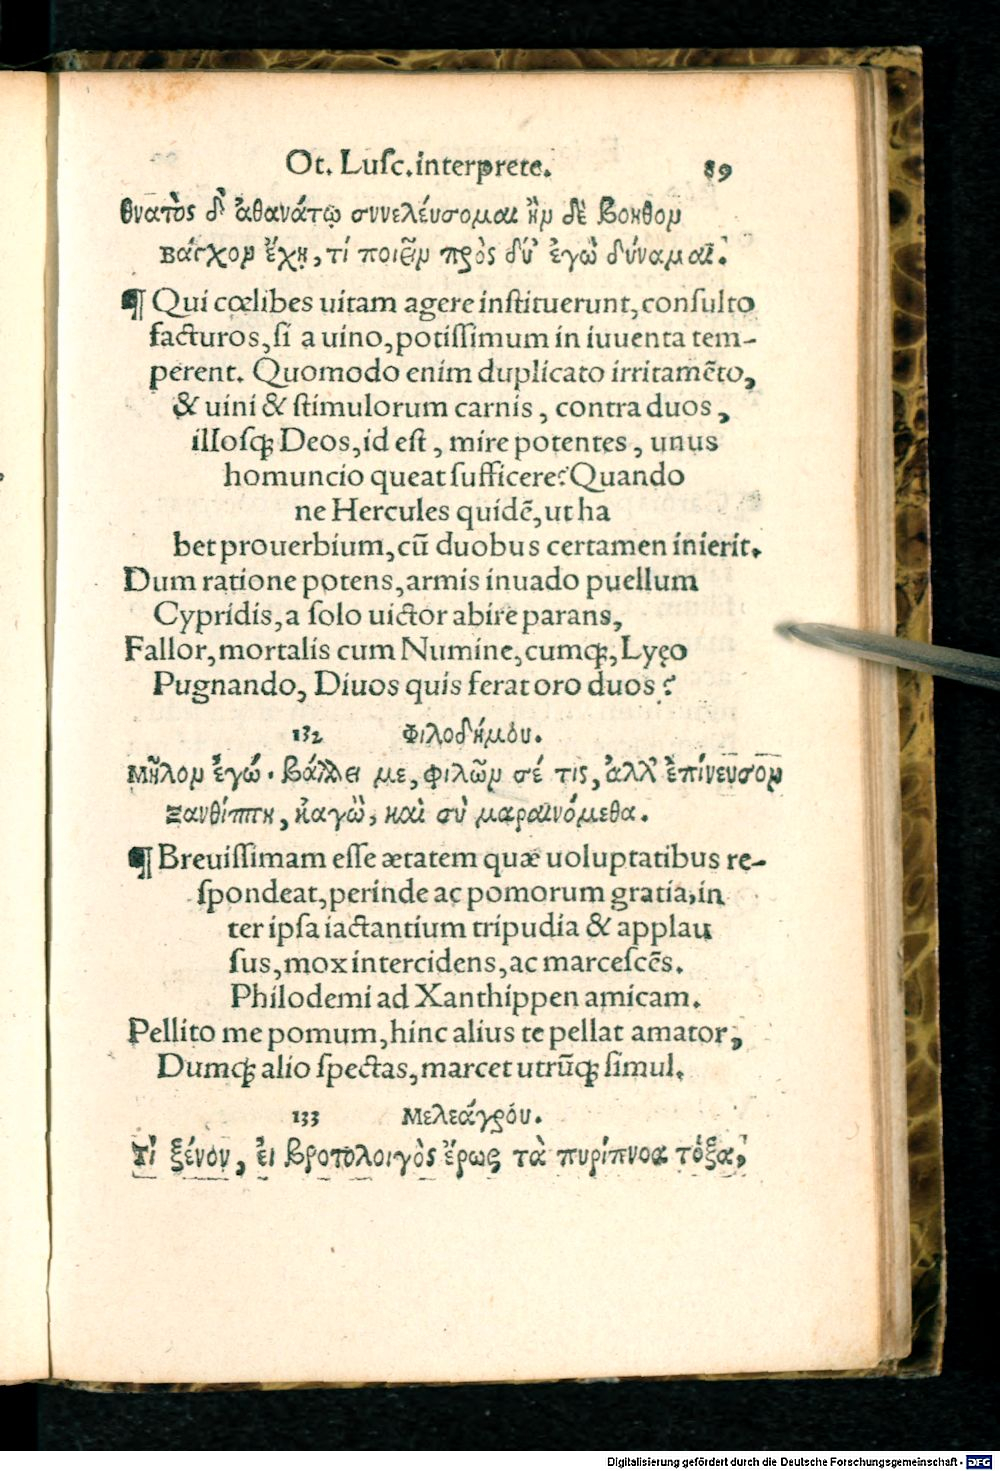 Ot. Luſc. interprete. 89
θνατὸς δ' ἀθανάτῳ συνελέυσομαι ἢν δὲ βοηθον
βάκχον ἔχῃ, τί ποιεῖν πρὸς δύ' ἐγὼ δύναμαι.
¶ Qui cœlibes uitam agere inſtituerunt, conſulto
facturos, ſi a uino, potiſſimum in iuuenta tem-
perent. Quomodo enim duplicato irritamēto,
& uini & ſtimulorum carnis, contra duos,
illoſqꝫ Deos, id eſt, mire potentes, unus
homuncio queat ſufficere? Quando
ne Hercules quidē, ut ha
bet prouerbium, cū duobus certamen inierit.
Dum ratione potens, armis inuado puellum
Cypridis, a ſolo uictor abire parans,
Fallor, mortalis cum Numine, cumqꝫ, Lyęo
Pugnando, Diuos quis ferat oro duos?
132 Φιλοδήμου.
Μῆλον ἐγώ. βάλλει με, φιλῶν σέ τις, ἀλλ' ἐπίνευσον
Ξανθίππη, κᾀγὼ, καὶ σὺ μαραινόμεθα.
¶ Breuiſſimam eſſe ætatem quæ uoluptatibus re-
ſpondeat, perinde ac pomorum gratia, in
ter ipſa iactantium tripudia & applau
ſus, mox intercidens, ac marceſcēs.
Philodemi ad Xanthippen amicam.
Pellito me pomum, hinc alius te pellat amator,
Dumqꝫ alio ſpectas, marcet utrūqꝫ ſimul.
133 Μελεάγρου.
Τὶ ξένον, ἐι βροτολοιγὸς ἔρως τὰ πυρίπνοα τόξα,
Digitalisierung gefördert durch die Deutsche Forschungsgemeinschaft - DFG